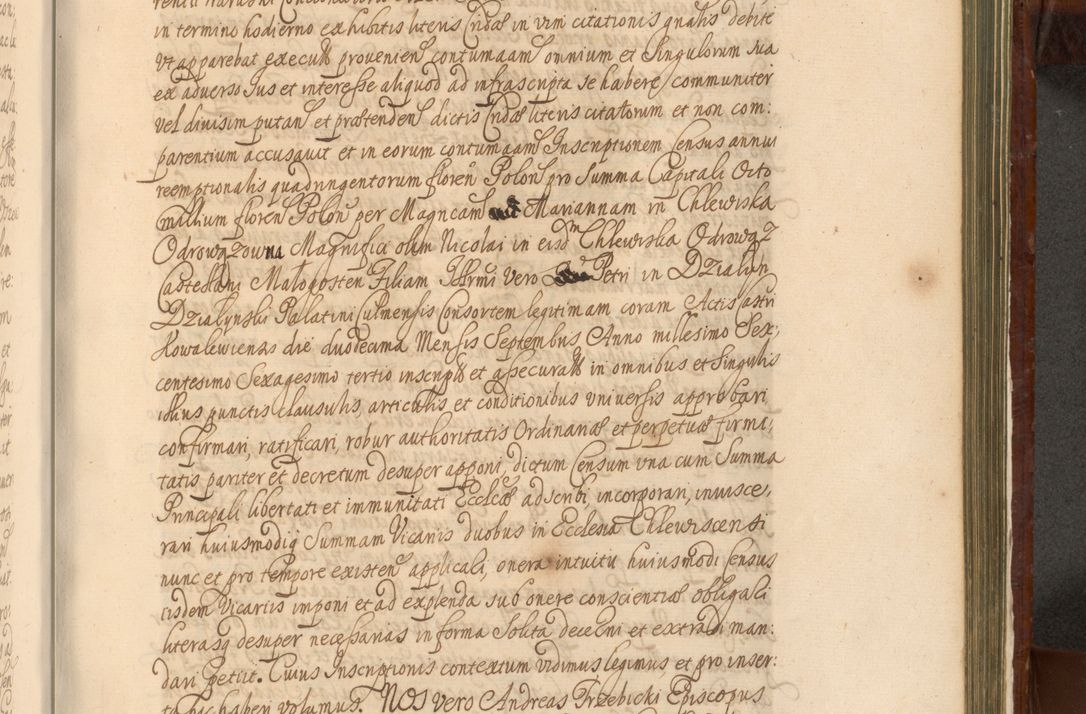 in termino hodierno exhibitis literis Cridae in vim citationis qualis debite
ut apparebat execut provenien contumaam omnium et Singulorum sua
ex adverso Ius et interesse aliquod ad infrascripta se habere communiter
vel divisim putan et praetenden dictis Cridae literis citatorum et non com:
parentium accusavit et in eorum contumaam Inscriptionem Census annui
reemptionalis quadringentorum floren Polon pro Summa Capitali Octo
millium floren Polon per Magncam Mariannam in Chlewiska
Odrowązowna Magnifici olim Nicolai in eisdm Chlewiska Odrowąz
Castellani Małogosten Filiam Illrmi vero Petri in Dzialin
Dzialynski Palatini Culmensis Consortem legitimam coram Actis Castri
Kowalewiensis die duodecima Mensis Septembris Anno millesimo Sex:
centesimo Sexagesimo tertio inscript et assecurat in omnibus et Singulis
illius punctis clausulis, articulis et conditionibus universis approbari
confirmari, ratificari, robur authoritatis Ordinariae et perpetuae firmi:
tatis pariter et decretum desuper apponi, dictum Censum una cum Summa
Principali libertati et immunitati Ecclcae adscribi, incorporari, invisce,
rari huiusmodiq Summam Vicariis duobus in Ecclesia Chlewiscensi
nunc et pro tempore existen applicali, onera intuitu huiusmodi Census
iisdem Vicariis imponi et ad explenda sub onere conscientiae obligali
literasq desuper necessarias in forma Solita decerni et extradi man:
dari petiit. Cuius Inscriptionis contextum vidimus legimus, et pro inser:
to hic haberi volumus. NOS vero Andreas Trzebicki Episcopus